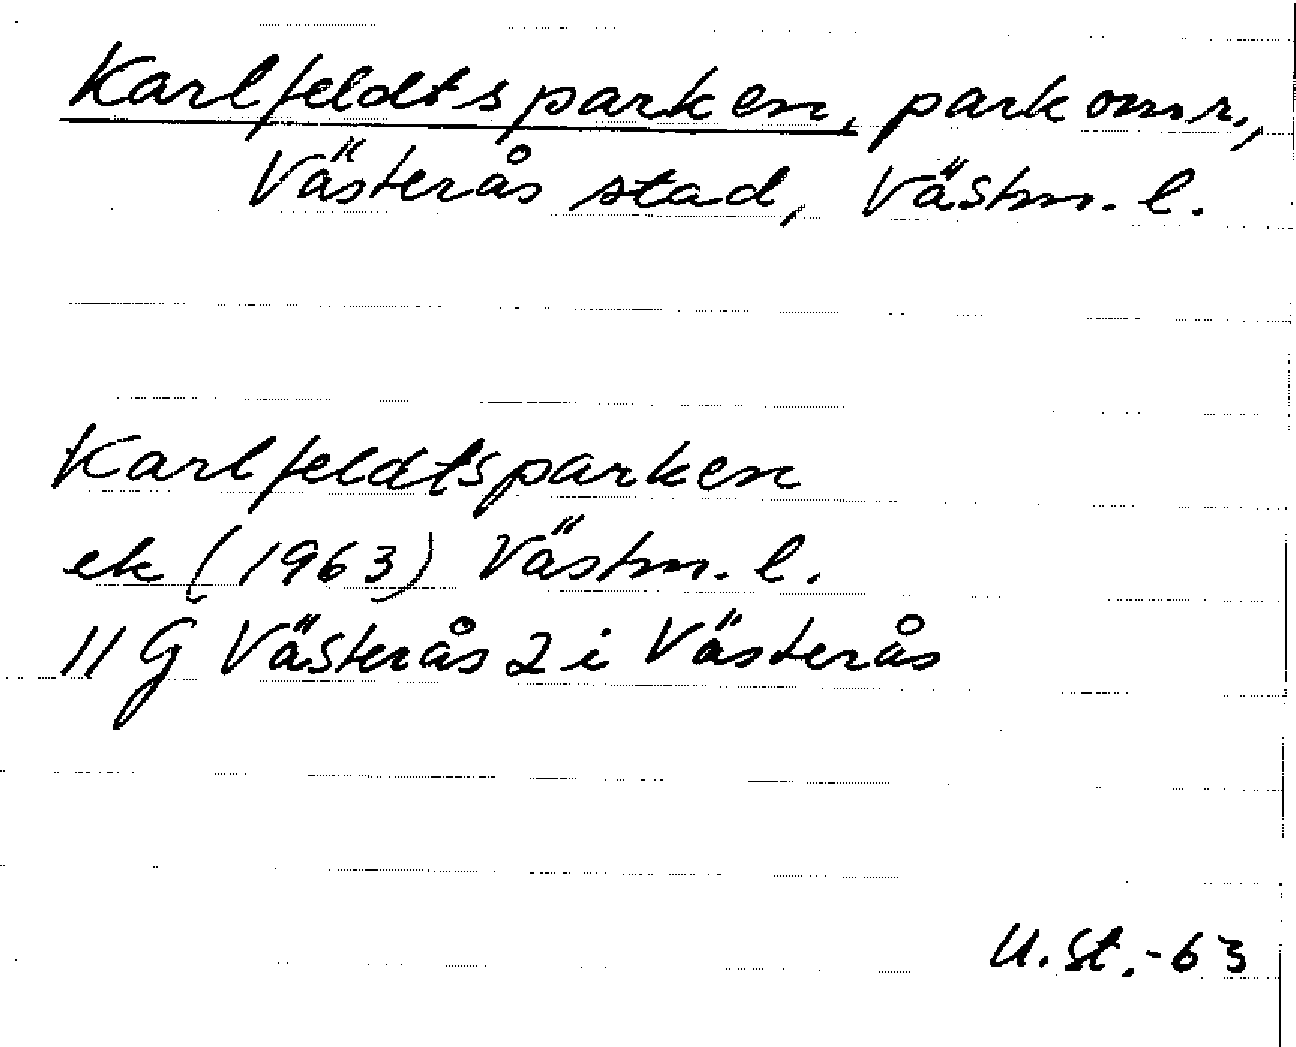 Karlfeldtsparken, park omr.,
Västerås stad, Västm. l.
Karlfeldtsparken
ek (1963) Västm. l.
11 G Västerås 2 i Västerås
U. St. -63